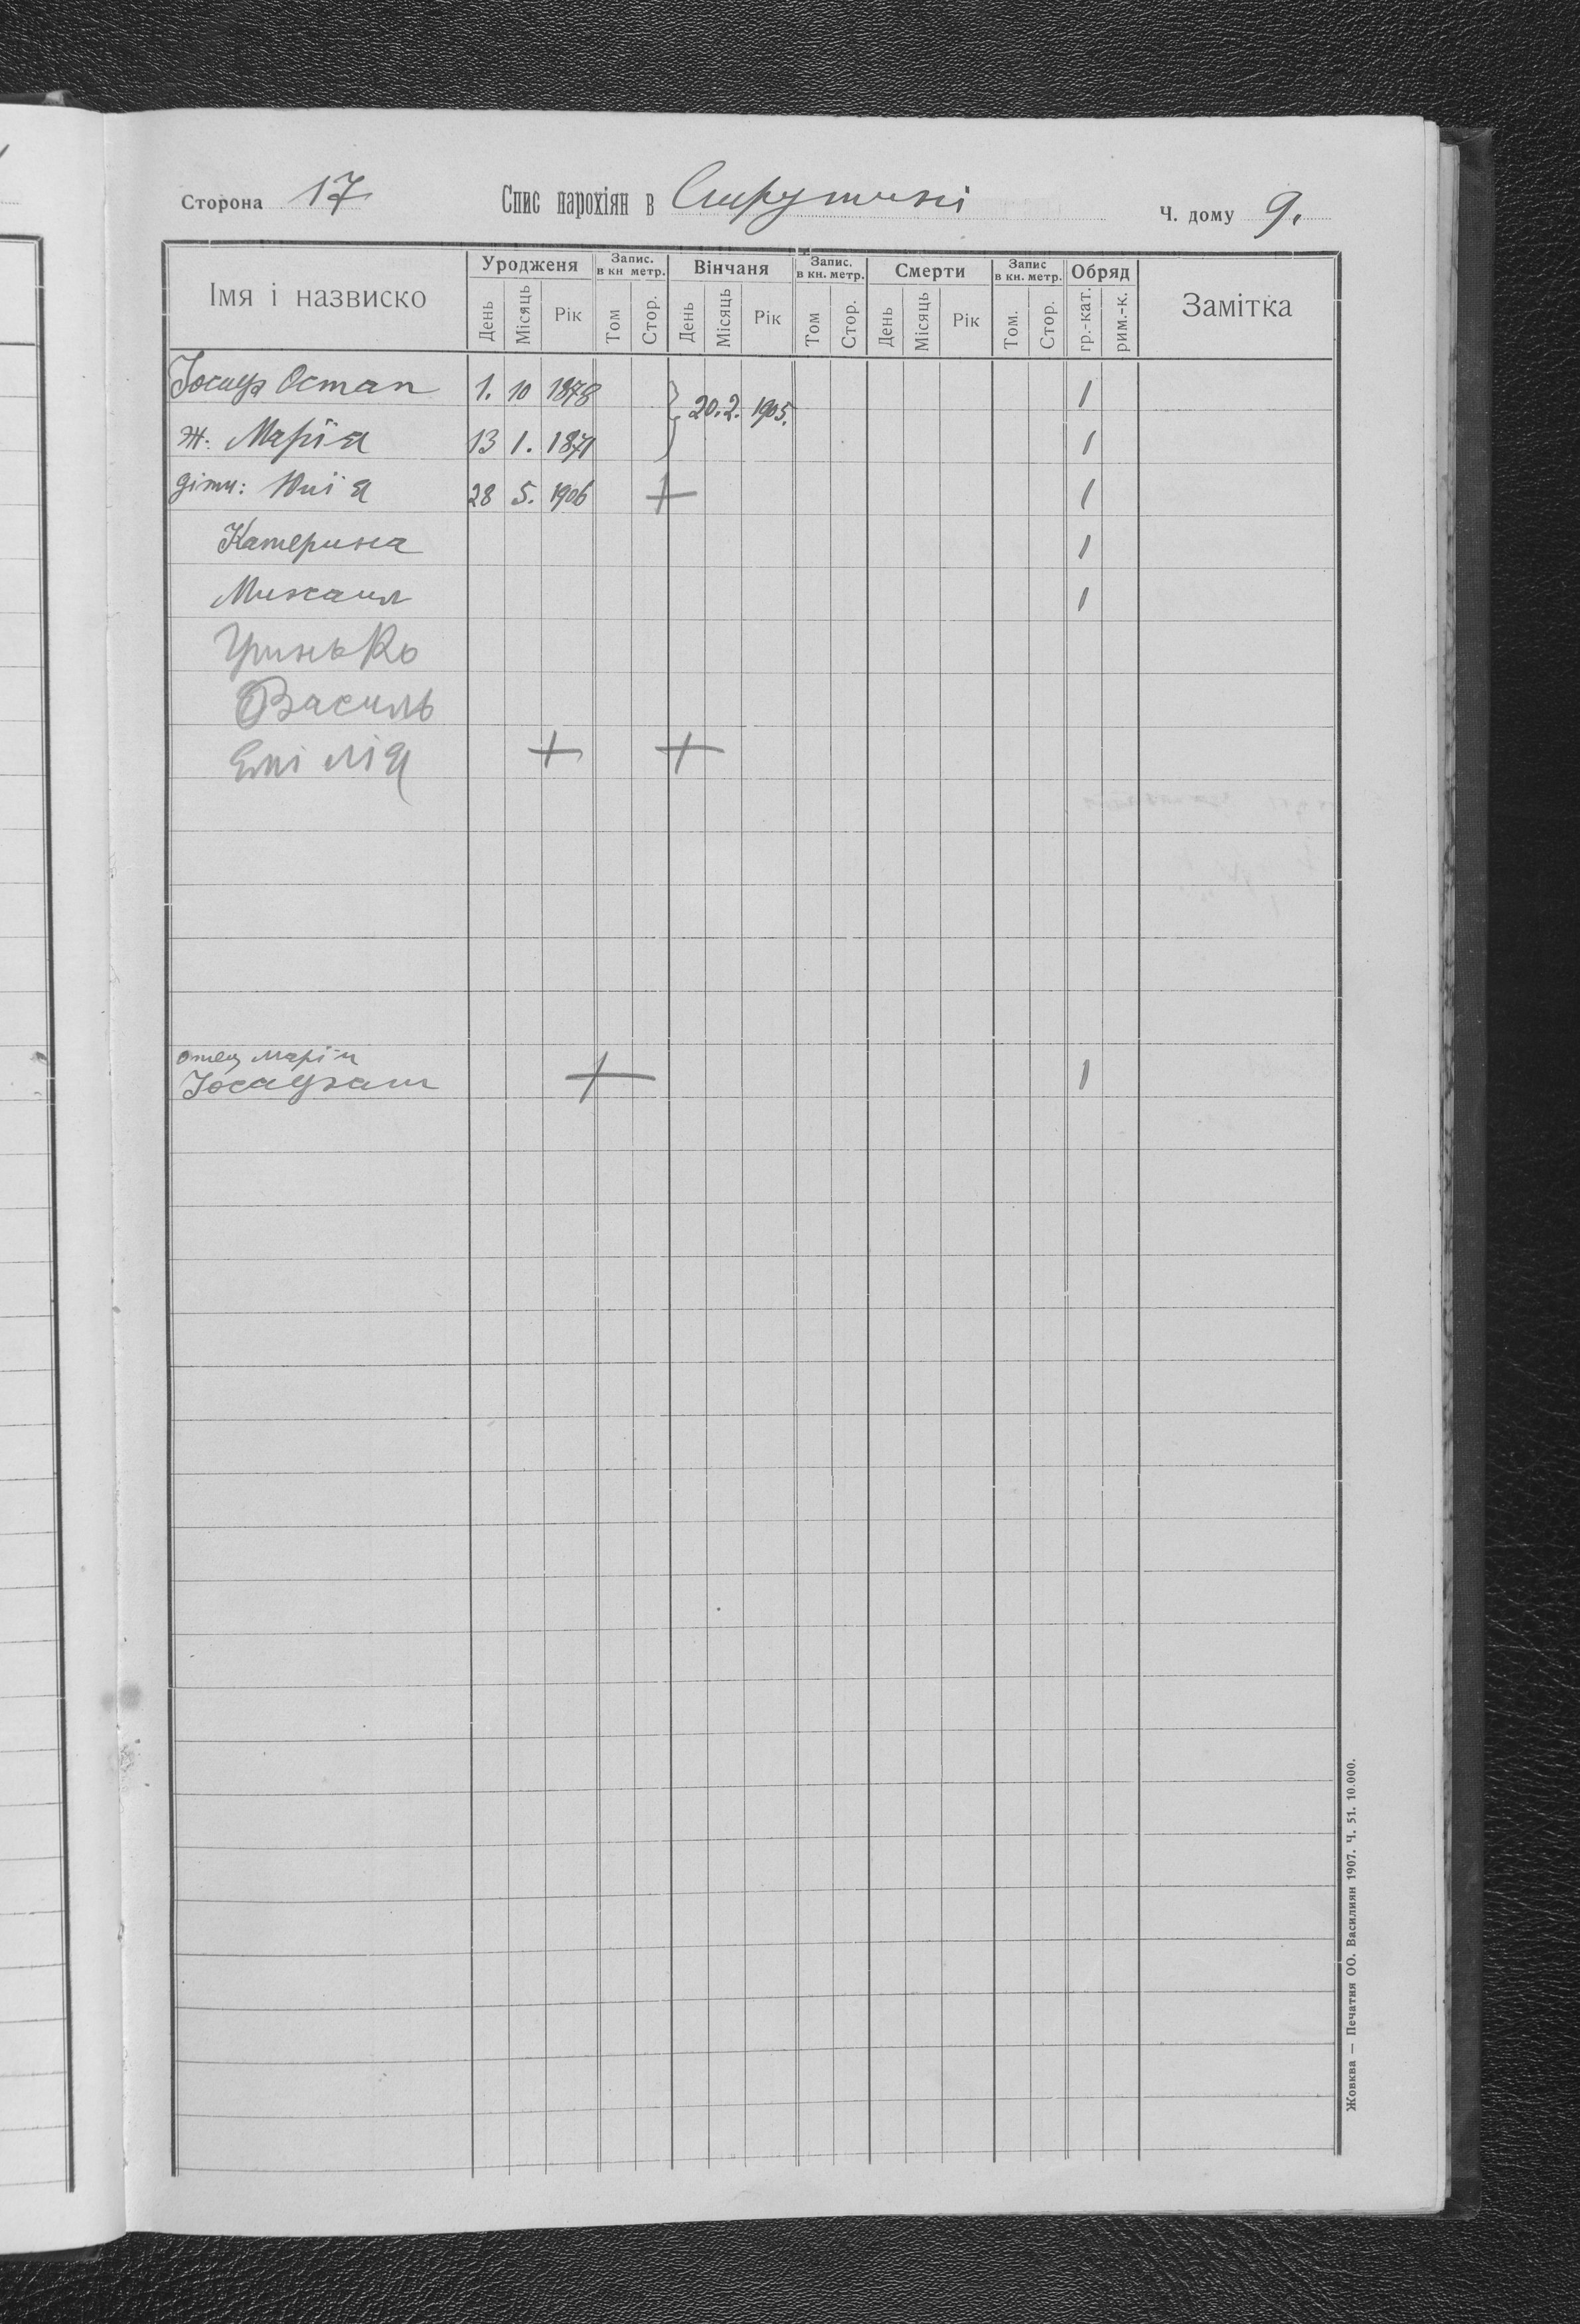 Сторона 17 Спис парохіян в Струтині Ч. дому 9.
Імя і назвиско Уродженя Запис. в кн метр. Вінчаня Запис. в кн. метр. Смерти Запис в кн. метр. Обряд Замітка
День Місяць Рік Том Стор. День Місяць Рік Том Стор. День Місяць Рік Том. Стор. гр.-кат. рим.-к.
Йосиф Остап 1. 10 1878 20. 2. 1905. 1
ж. Марія 13 1. 1871 1
діти: Юлія 28 5. 1906 + 1
Катерина 1
Михаил 1
Гринько
Василь
Емілія + +
отец Марії
Йосафат + 1
Жовква — Печатня ОО. Василиян 1907. Ч. 51. 10.000.